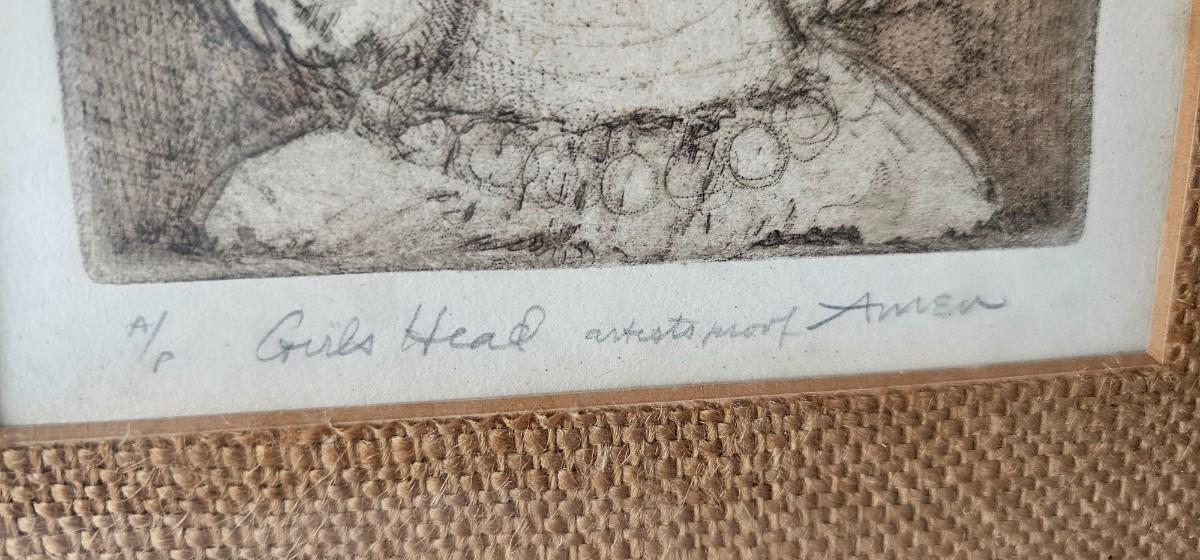 A/P Girls Head artists proof Amen